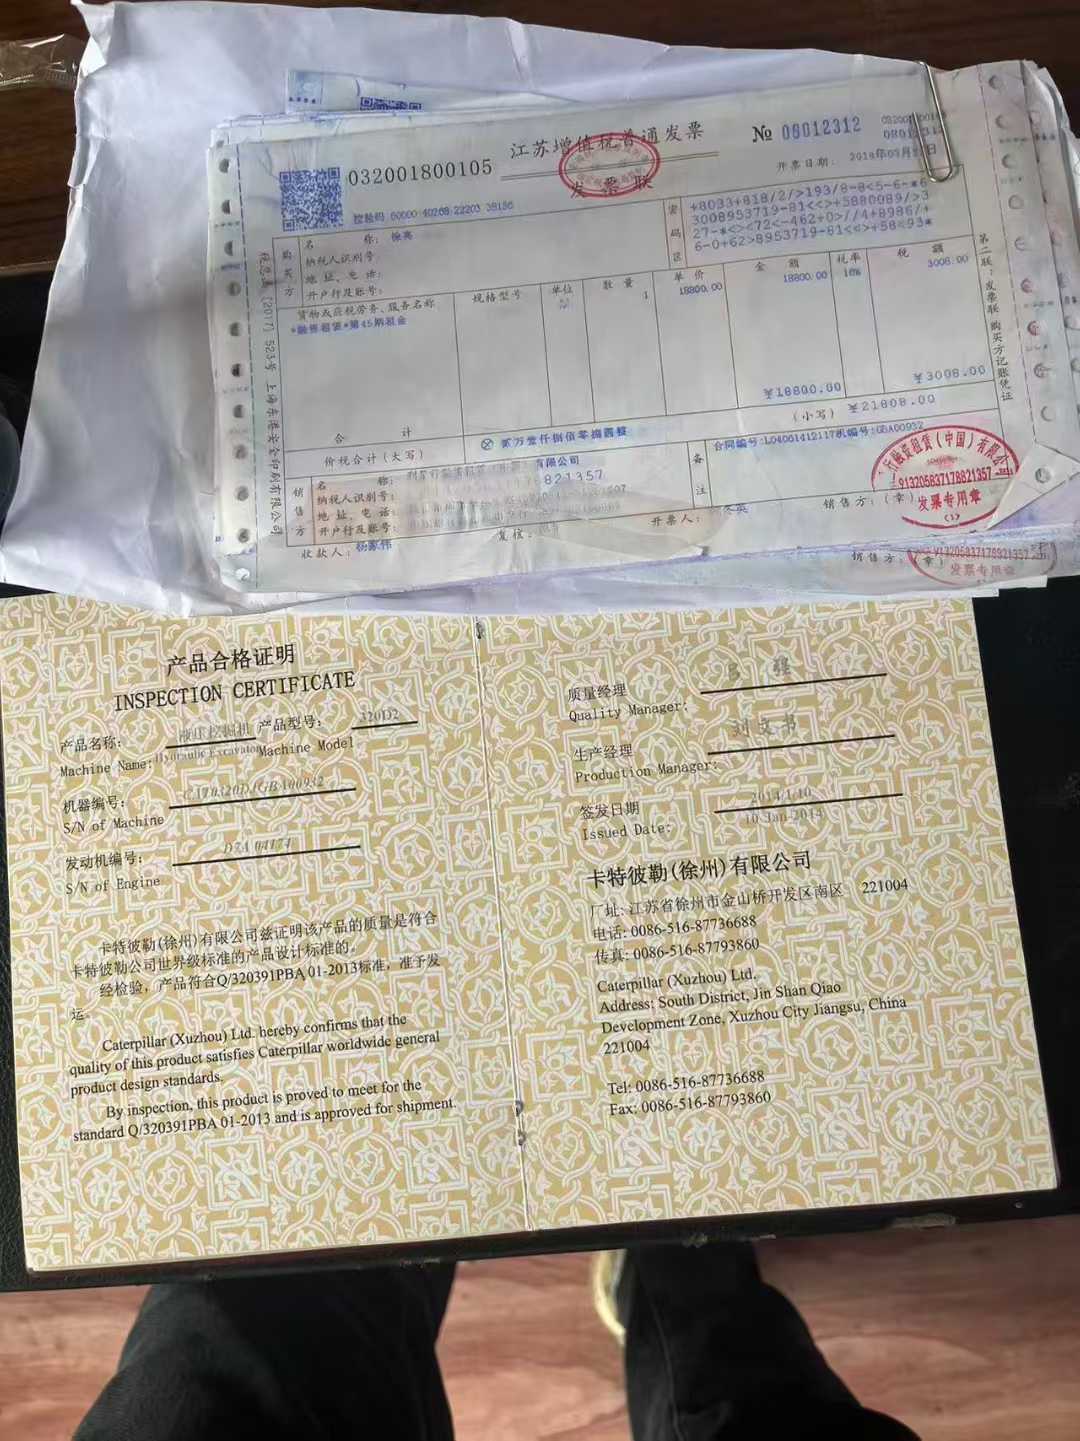 江苏增值税普通发票
发票联
032001800105
№ 08012312
开票日期：
控验码 60000 40268 22203 38186
税总函〔2017〕523号 上海东港安全印刷有限公司
购买方
名 称：徐亮
纳税人识别号：
地址、电话：
开户行及账号：
密码区
+8033+818/2/>193/8-8<5-6-*6
3008953719-81<<>+5880089/>3
27-*<><72<-462+0>//4+8986/+
6-0+62>8953719-81<<>+58<93*
货物或应税劳务、服务名称 规格型号 单位 数量 单价 金额 税率 税额
*融资租赁*第45期租金 1 18800.00 18800.00 16% 3008.00
合计 ￥18800.00 ￥3008.00
价税合计（大写） ⊗ 贰万壹仟捌佰零捌圆整 （小写） ￥21808.00
第二联：发票联 购买方记账凭证
销售方
名 称： 有限公司
纳税人识别号： 821357
地址、电话：
开户行及账号：
备注
合同编号:L04061412117机编号:GBA00932
收款人：杨家伟 复核： 开票人： 销售方：（章）
融资租赁（中国）有限公
913205837178821357
发票专用章
(1)
销售方：（章）
913205837178821357
发票专用章
产品合格证明
INSPECTION CERTIFICATE
产品名称： 液压挖掘机 产品型号： 320D2
Machine Name: Hydraulic Excavator Machine Model
机器编号：
S/N of Machine
发动机编号： D7A 04174
S/N of Engine
卡特彼勒(徐州)有限公司兹证明该产品的质量是符合
卡特彼勒公司世界级标准的产品设计标准的。
经检验，产品符合Q/320391PBA 01-2013标准，准予发
运。
Caterpillar (Xuzhou) Ltd. hereby confirms that the
quality of this product satisfies Caterpillar worldwide general
product design standards.
By inspection, this product is proved to meet for the
standard Q/320391PBA 01-2013 and is approved for shipment.
质量经理 吕强
Quality Manager:
生产经理 刘文书
Production Manager:
签发日期 2014/1/10
Issued Date: 10-Jan-2014
卡特彼勒(徐州)有限公司
厂址: 江苏省徐州市金山桥开发区南区 221004
电话: 0086-516-87736688
传真: 0086-516-87793860
Caterpillar (Xuzhou) Ltd.
Address: South District, Jin Shan Qiao
Development Zone, Xuzhou City Jiangsu, China
221004
Tel: 0086-516-87736688
Fax: 0086-516-87793860